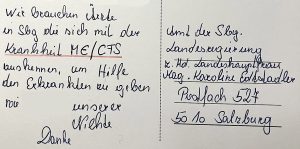 Wir brauchen Ärzte
in Sbg die sich mit der
Krankheit ME/CTS
auskennen, um Hilfe
den Erkrankten zu geben
wie
unserer
Nichte
Danke
Amt der Sbg.
Landesregierung
z. Hd. Landeshauptfrau
Mag. Karoline Edtstadler
Postfach 527
5010 Salzburg